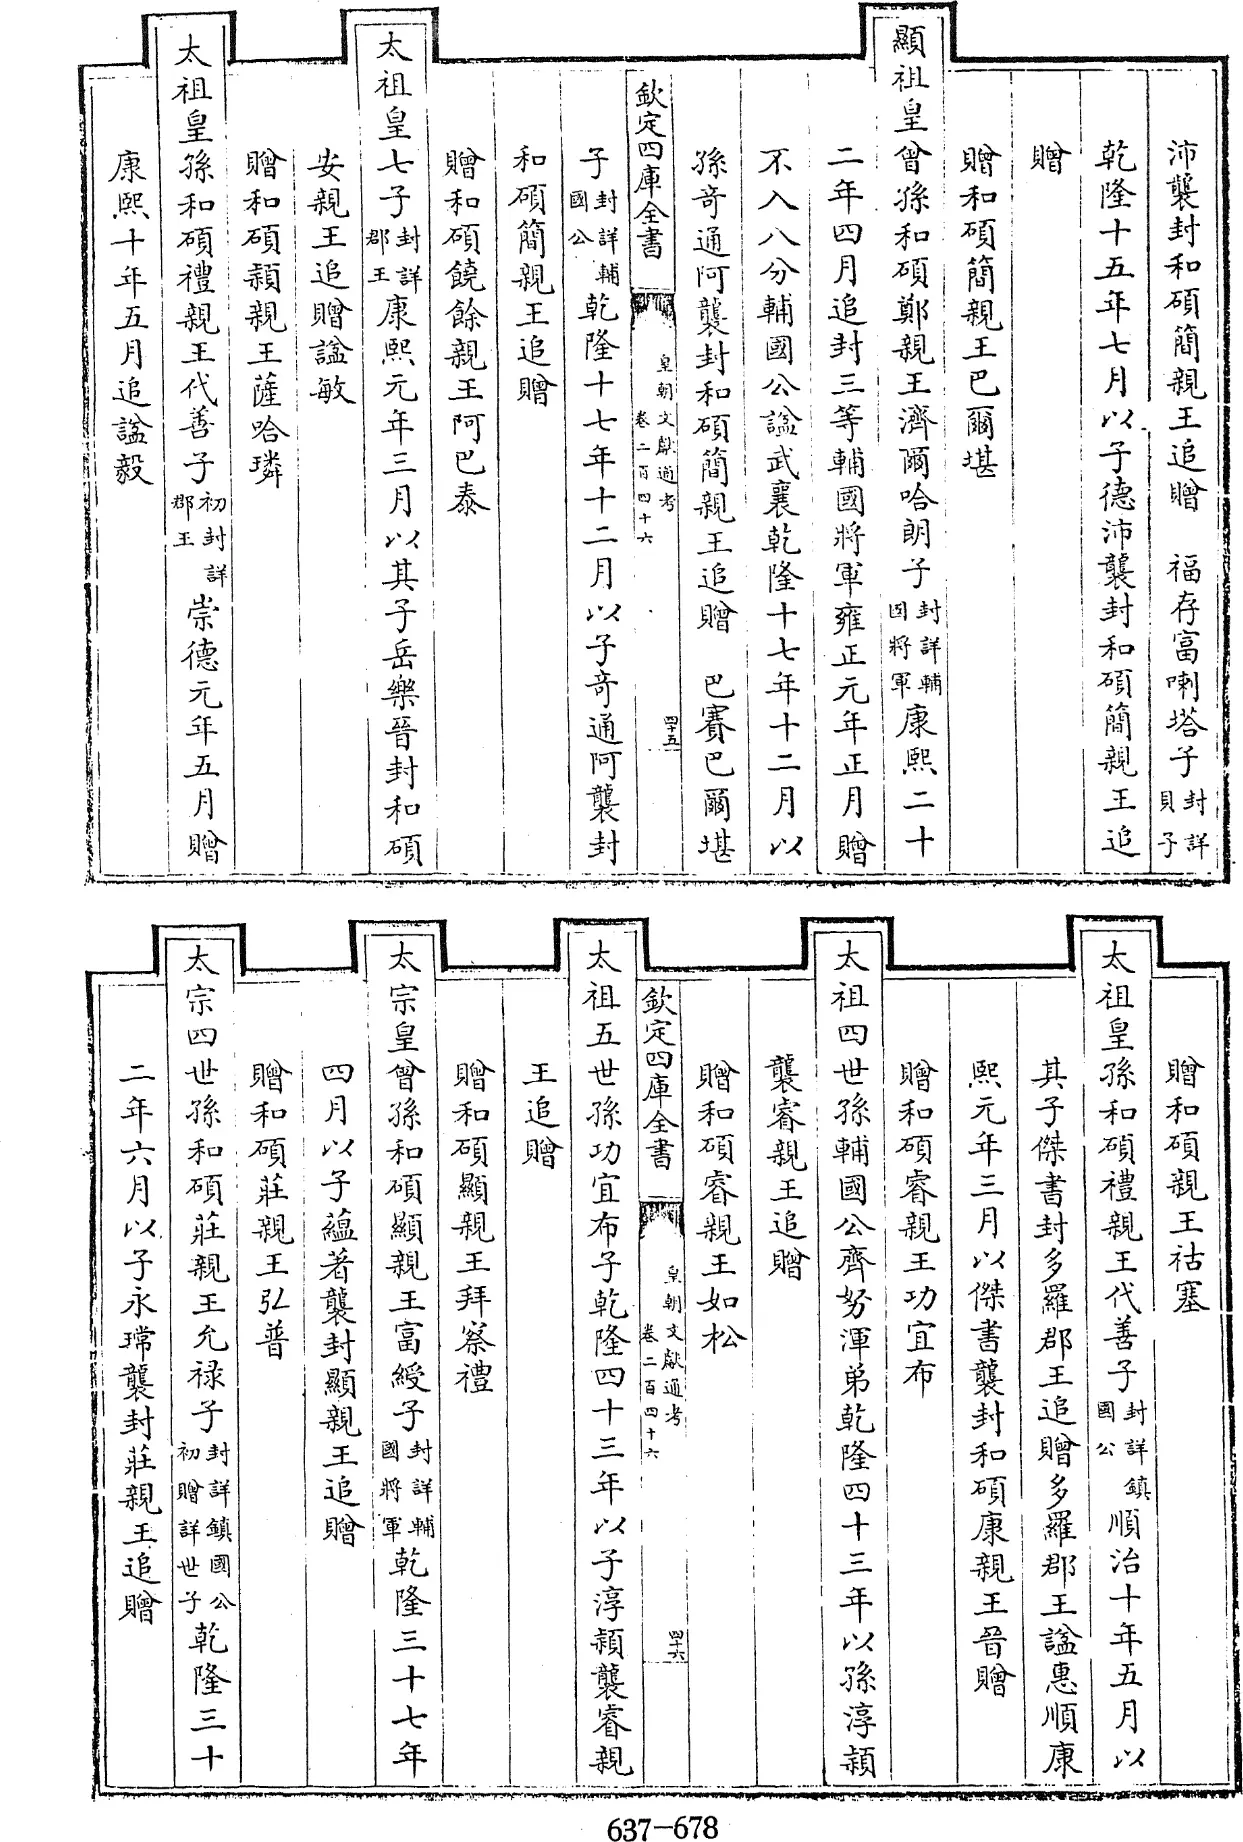 沛襲封和碩簡親王追贈　福存富喇塔子封詳貝子
乾隆十五年七月以子德沛襲封和碩簡親王追
贈
贈和碩簡親王巴爾堪
顯祖皇曾孫和碩鄭親王濟爾哈朗子封詳輔國將軍康熙二十
二年四月追封三等輔國將軍雍正元年正月贈
不入八分輔國公諡武襄乾隆十七年十二月以
孫奇通阿襲封和碩簡親王追贈　巴賽巴爾堪
欽定四庫全書　皇朝文獻通考卷二百四十六　四十五
子封詳輔國公乾隆十七年十二月以子奇通阿襲封
和碩簡親王追贈
贈和碩饒餘親王阿巴泰
太祖皇七子封詳郡王康熙元年三月以其子岳樂晉封和碩
安親王追贈諡敏
贈和碩穎親王薩哈璘
太祖皇孫和碩禮親王代善子初封詳郡王崇德元年五月贈
康熙十年五月追諡毅
贈和碩親王祜塞
太祖皇孫和碩禮親王代善子封詳鎮國公順治十年五月以
其子傑書封多羅郡王追贈多羅郡王諡惠順康
熙元年三月以傑書襲封和碩康親王晉贈
贈和碩睿親王功宜布
太祖四世孫輔國公齊努渾弟乾隆四十三年以孫淳穎
襲睿親王追贈
贈和碩睿親王如松
欽定四庫全書　皇朝文獻通考卷二百四十六　四十六
太祖五世孫功宜布子乾隆四十三年以子淳穎襲睿親
王追贈
贈和碩顯親王拜察禮
太宗皇曾孫和碩顯親王富綬子封詳輔國將軍乾隆三十七年
四月以子蘊著襲封顯親王追贈
贈和碩莊親王弘普
太宗四世孫和碩莊親王允祿子封詳鎮國公初贈詳世子乾隆三十
二年六月以子永瑺襲封莊親王追贈
637-678